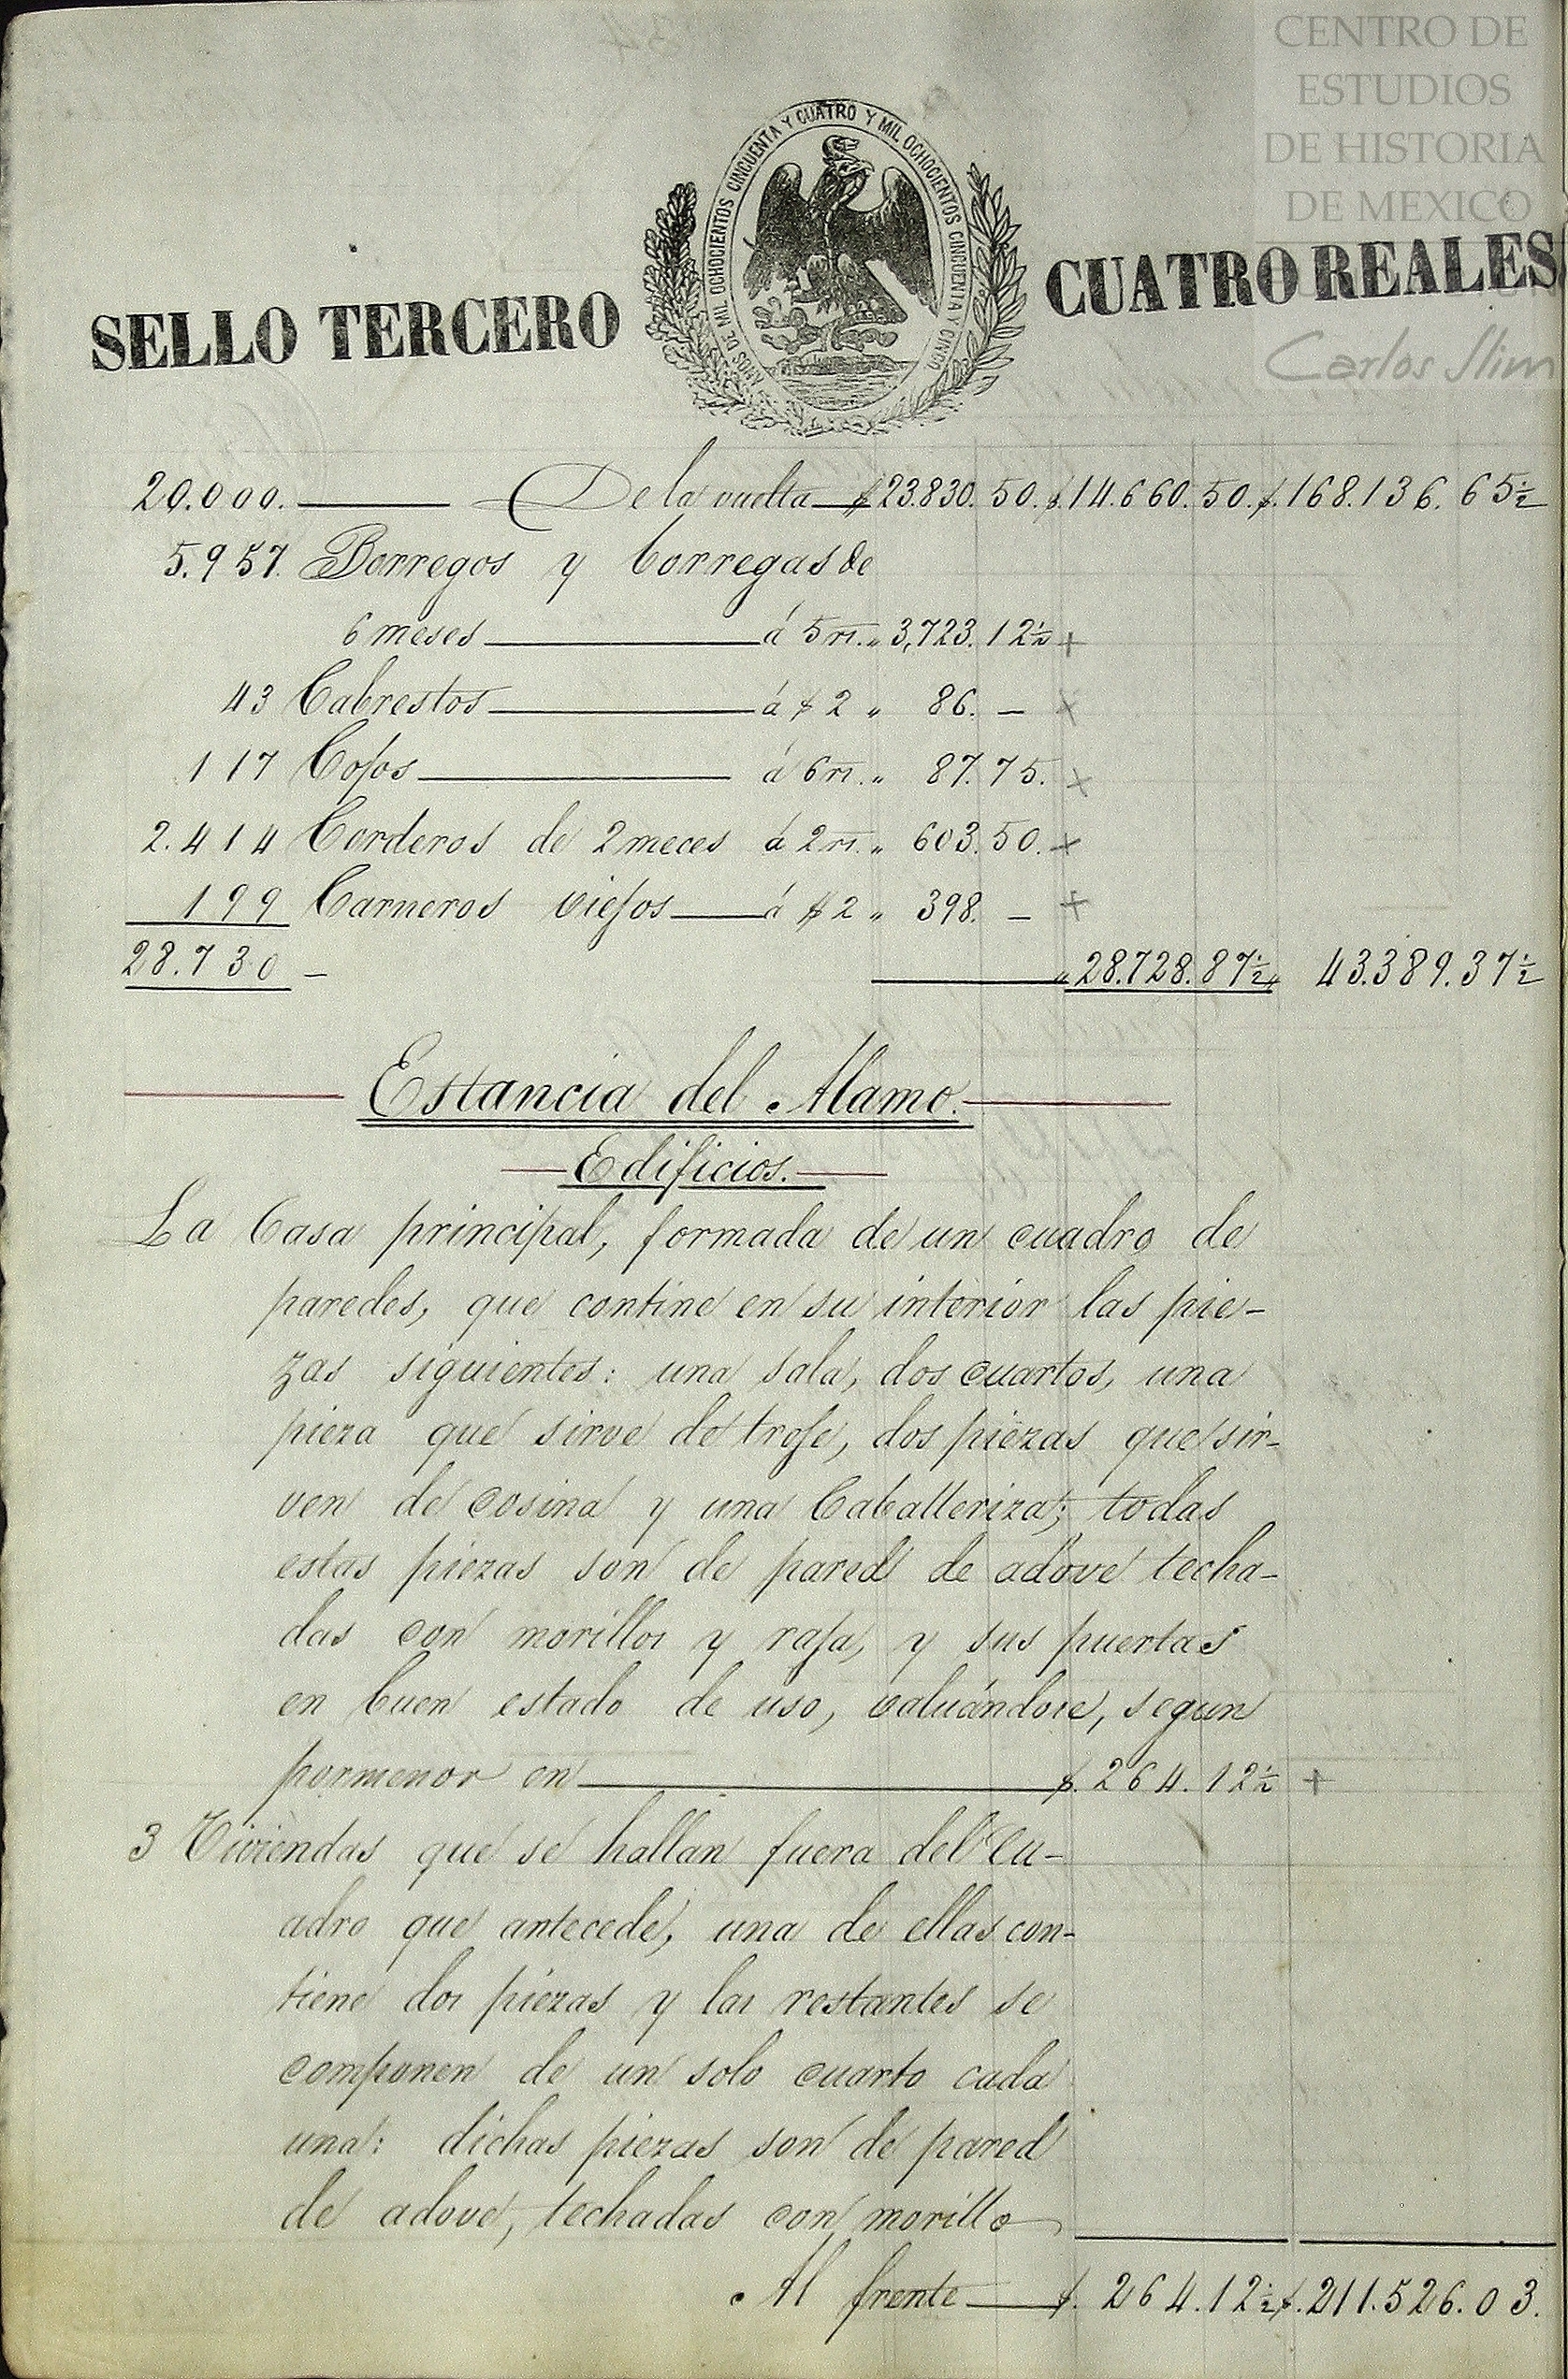 CENTRO DE
ESTUDIOS
DE HISTORIA
DE MEXICO
Carlos Slim
AÑOS DE MIL OCHOCIENTOS CINCUENTA Y CUATRO Y MIL OCHOCIENTOS CINCUENTA Y CINCO
SELLO TERCERO CUATRO REALES
20.000. De la vuelta $23.830.50. $.14.660.50. $.168.136.65½
5.957. Borregos y borregas de
6 meses á 5 rs. " 3,723.12½ +
43 Cabrestos á $ 2 " 86. — ×
117 Cojos á 6 rs. " 87.75. ×
2.414 Corderos de 2 meces á 2 rs. " 603.50. ×
199 Carneros viejos á $ 2 " 398. — +
28.730 — " 28.728.87½ " 43.389.37½
Estancia del Alamo.
Edificios.
La Casa principal, formada de un cuadro de
paredes, que contine en su interior las pie-
zas siguientes: una sala, dos cuartos, una
pieza que sirve de troje, dos piezas que sir-
ven de cosina y una Caballeriza; todas
estas piezas son de pared de adove techa-
das con morillos y raja, y sus puertas
en buen estado de uso, valuándose, segun
pormenor en $. 264.12½ +
3 Viviendas que se hallan fuera del cu-
adro que antecede, una de ellas con-
tiene dos piezas y las restantes se
componen de un solo cuarto cada
una: dichas piezas son de pared
de adove, techadas con morillo
Al frente $. 264.12½ $.211.526.03.